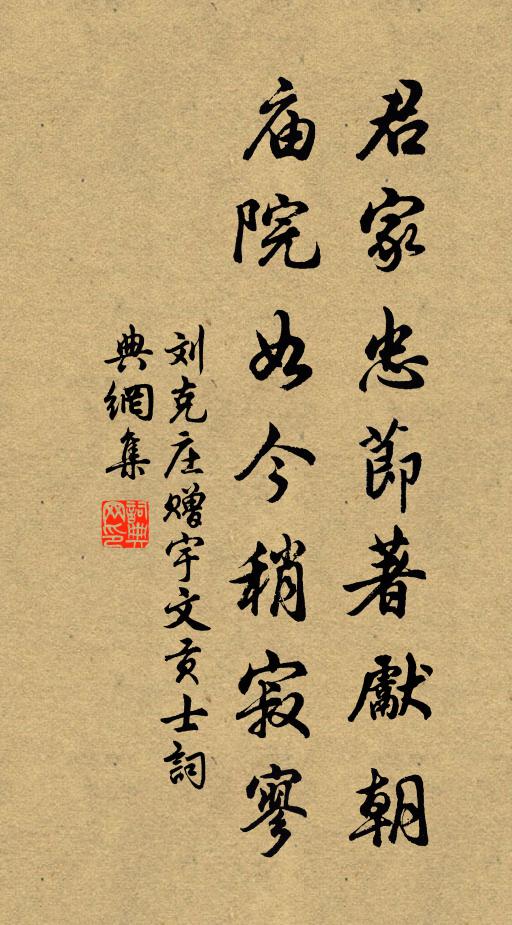 君家忠節著獻朝
庙院如今稍寂寥
刘克庄赠宇文贡士詞
典網集
詞典网印